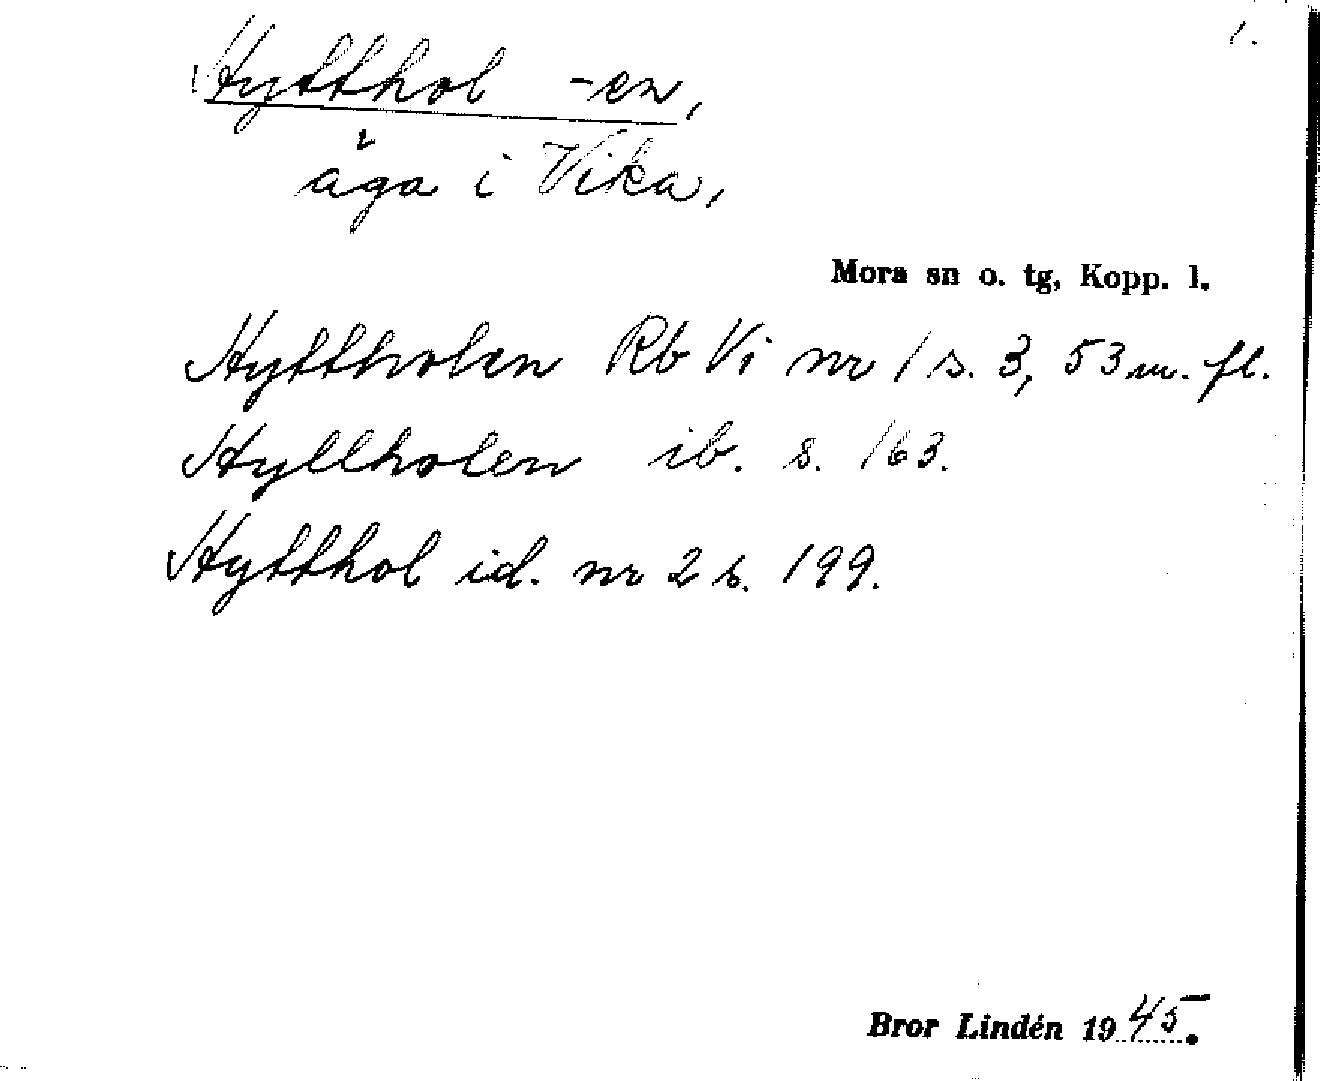 1.
Hytthol -en,
äga i Vika,
Mora sn o. tg, Kopp. l.
Hyttholen Rb Vi nr 1 s. 3, 53 m. fl.
Hyllholen ib. s. 163.
Hytthol id. nr 2 s. 199.
Bror Lindén 1945.